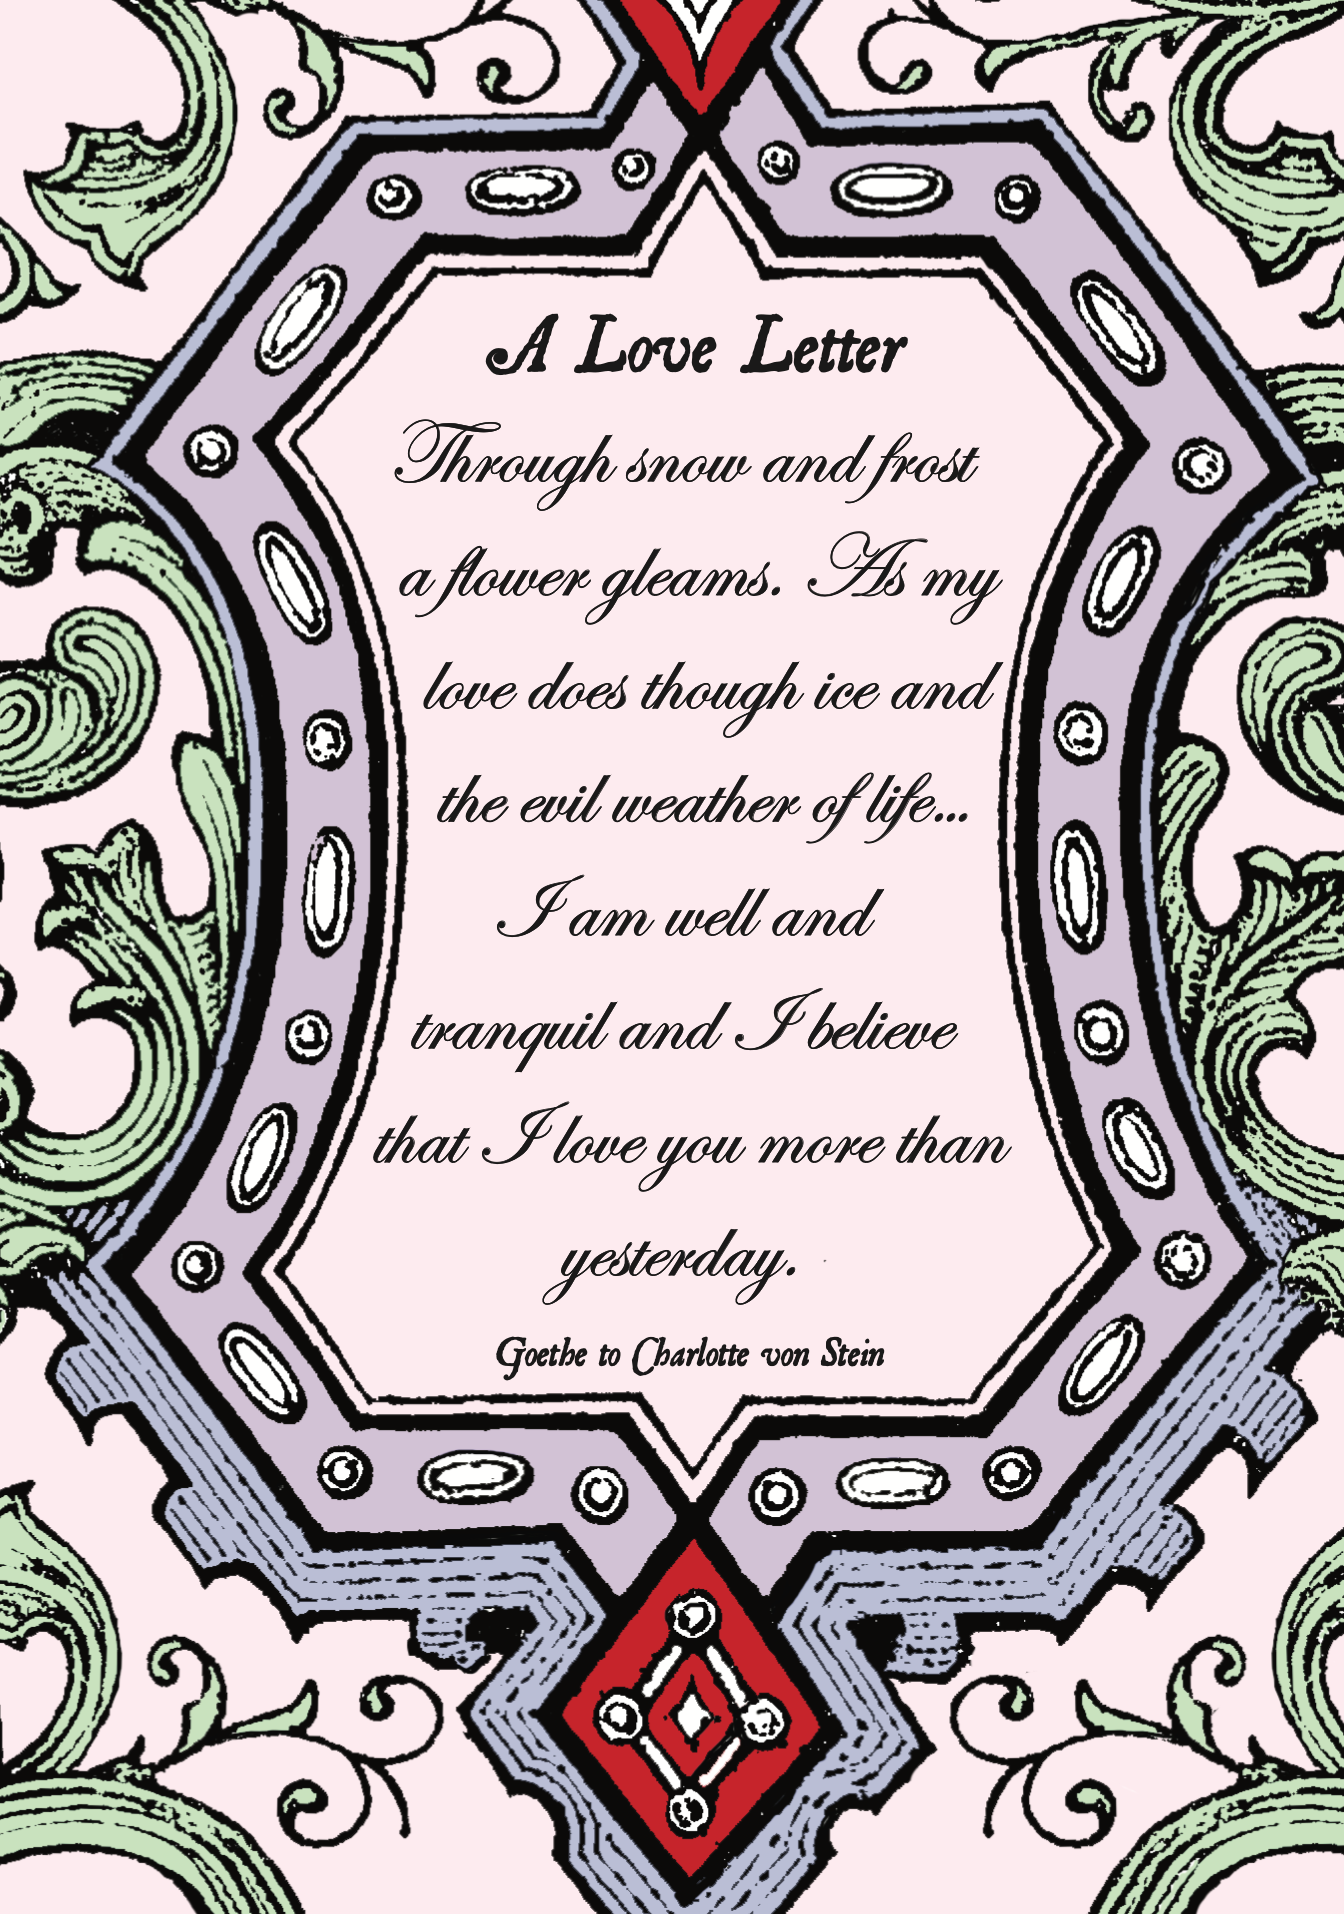 A Love Letter
Through snow and frost
a flower gleams. As my
love does though ice and
the evil weather of life...
I am well and
tranquil and I believe
that I love you more than
yesterday.
Goethe to Charlotte von Stein